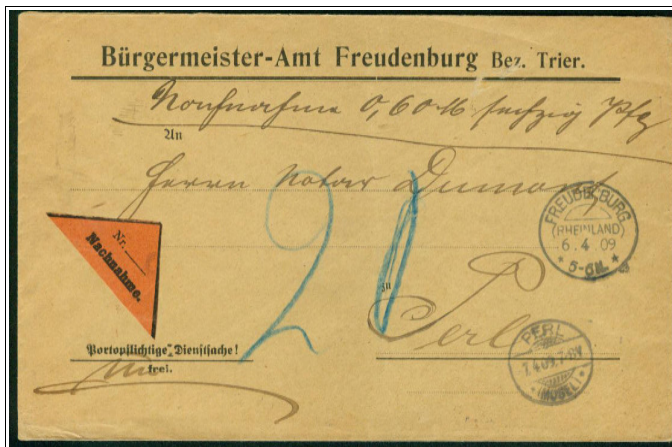 Bürgermeister-Amt Freudenburg Bez. Trier.
Nachnahme 0,60 M sechzig Pfg
An
Herrn Notar Dumont
FREUDENBURG
(RHEINLAND)
6.4.09
5-6N.
Nr.
Nachnahme.
20
zu
Perl
Portopflichtige Dienstsache!
frei.
PERL
7.4.09.7-8V
(MOSEL)